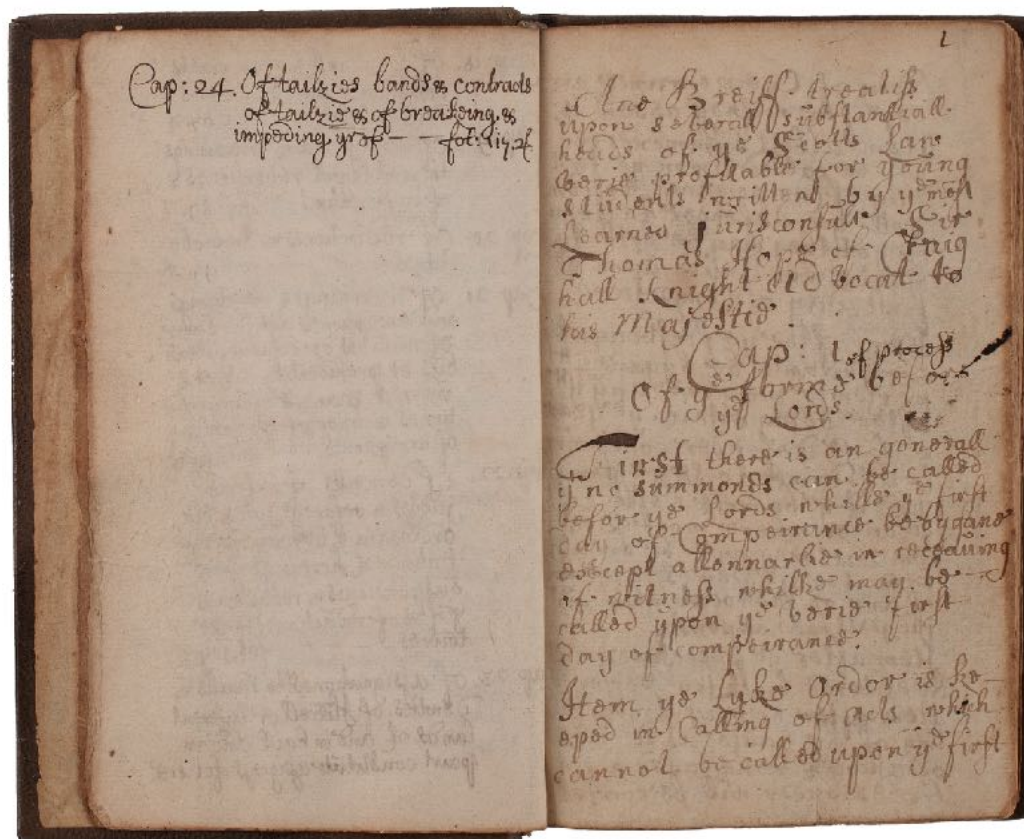 Cap: 24. Of tailzies bands & contracts
of tailzie & of breakeing &
impeding yrof — — fol: 117. 2
1
Ane Breiff treatiss
upon severall substantiall
heads of ye Scotts Law
verie profitable for young
students written by ye most
Learned Jurisconsult Sir
Thomas Hope of Craig
hall Knight Advocat to
his Majestie.
Cap: 1
of process
Of ye forme before
ye Lords.
First there is an generall
yt no summonds can be called
befor ye Lords whille ye first
day of Compeirance be bygane
except allennarlie in receaving
of witness whilke may be
called upon ye verie first
day of compeirance.
Item ye Lyke Ordor is ke–
eped in Calling of Acts which
cannot be called upon ye first